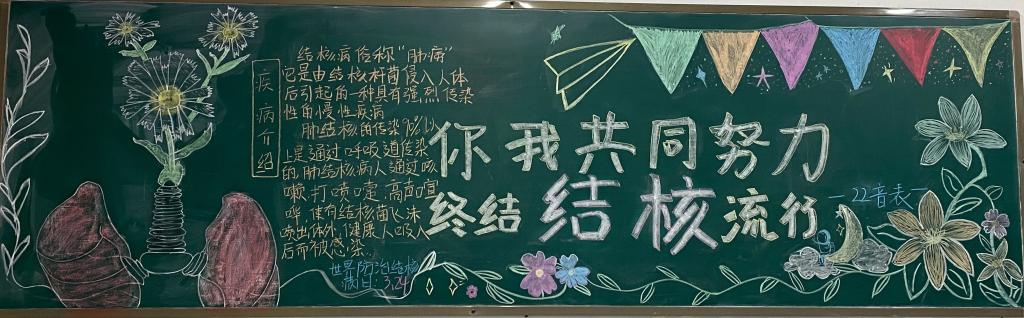 疾病介绍
结核病俗称“肺痨”
它是由结核杆菌侵入人体
后引起的一种具有强烈传染
性的慢性疾病
肺结核菌传染1%以
上是通过呼吸道传染
的,肺结核病人通过咳
嗽、打喷嚏、高声喧
哗,使有结核菌飞沫
喷出体外,健康人吸入
后而被感染
世界防治结核
病日:3.24
你我共同努力
终结结核流行
—22音表—